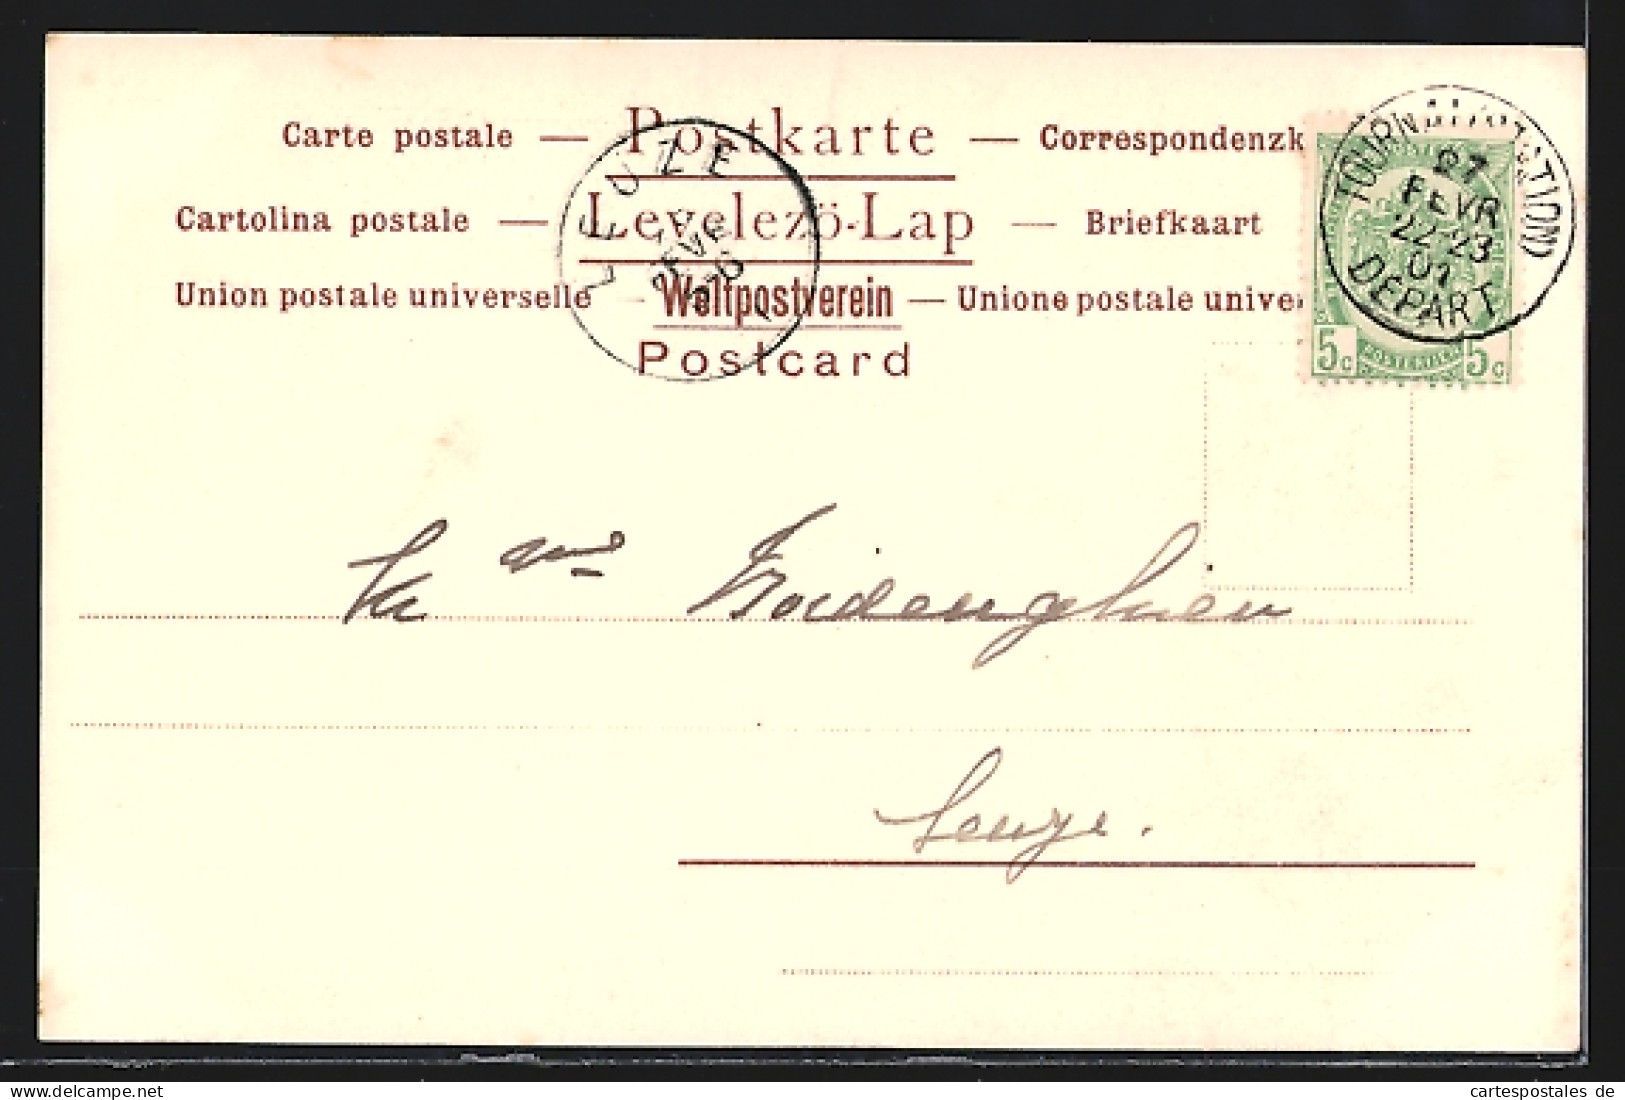 Carte postale — Postkarte — Correspondenzk
Cartolina postale — Levelezö-Lap — Briefkaart
Union postale universelle — Weltpostverein — Unione postale univer
Postcard
TOURNAI (STATION)
27
FEVR
22-23
01
DEPART
5c 5c
LEUZE
FEVR
Leuze.
cartespostales de